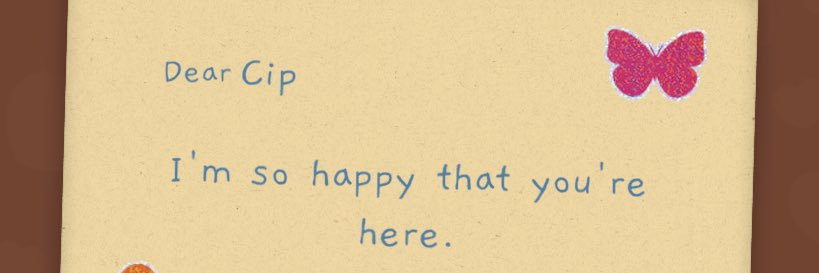 Dear Cip
I'm so happy that you're
here.